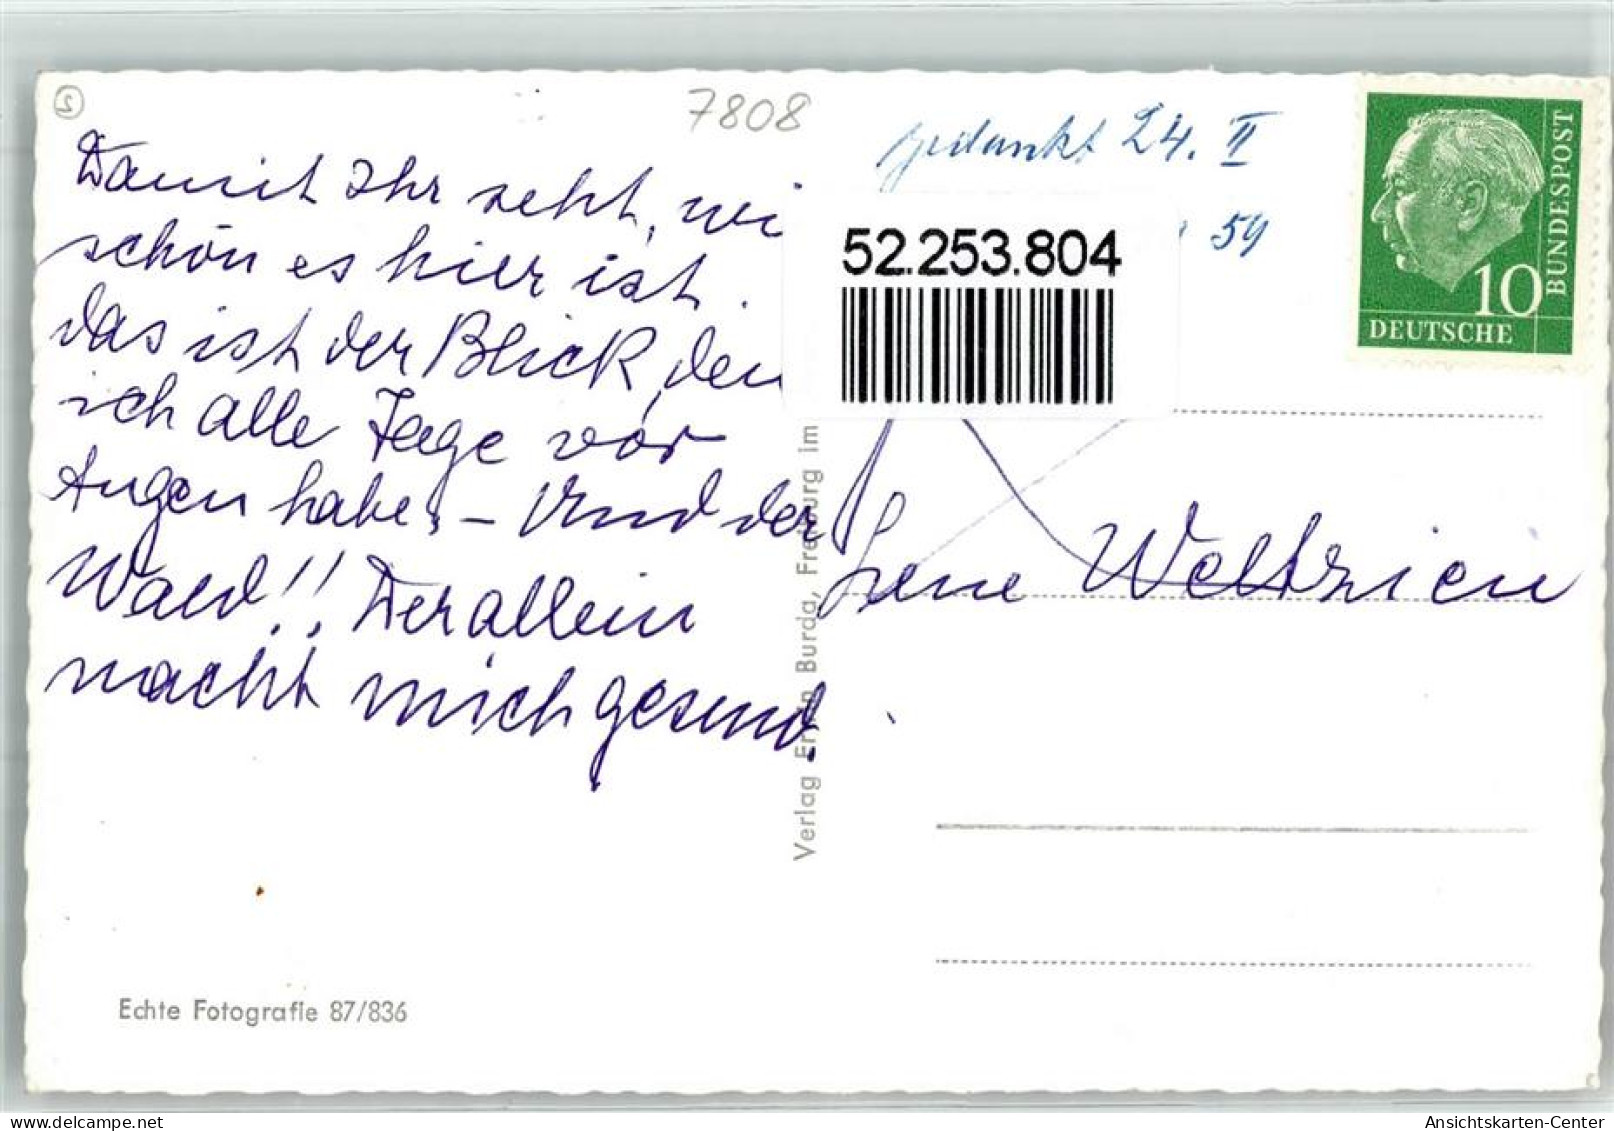 7808
Damit Ihr seht, wi
schön es hier ist.
das ist der Blick, den
ich alle Tage vor
Augen habe. – Und der
Wald!! Der allein
macht mich gesund.
Echte Fotografie 87/836
Verlag Erwin Burda, Freiburg im
gedankt 24. II
59
52.253.804
DEUTSCHE
BUNDESPOST
10
Lene Weltzien
Ansichtskarten-Center